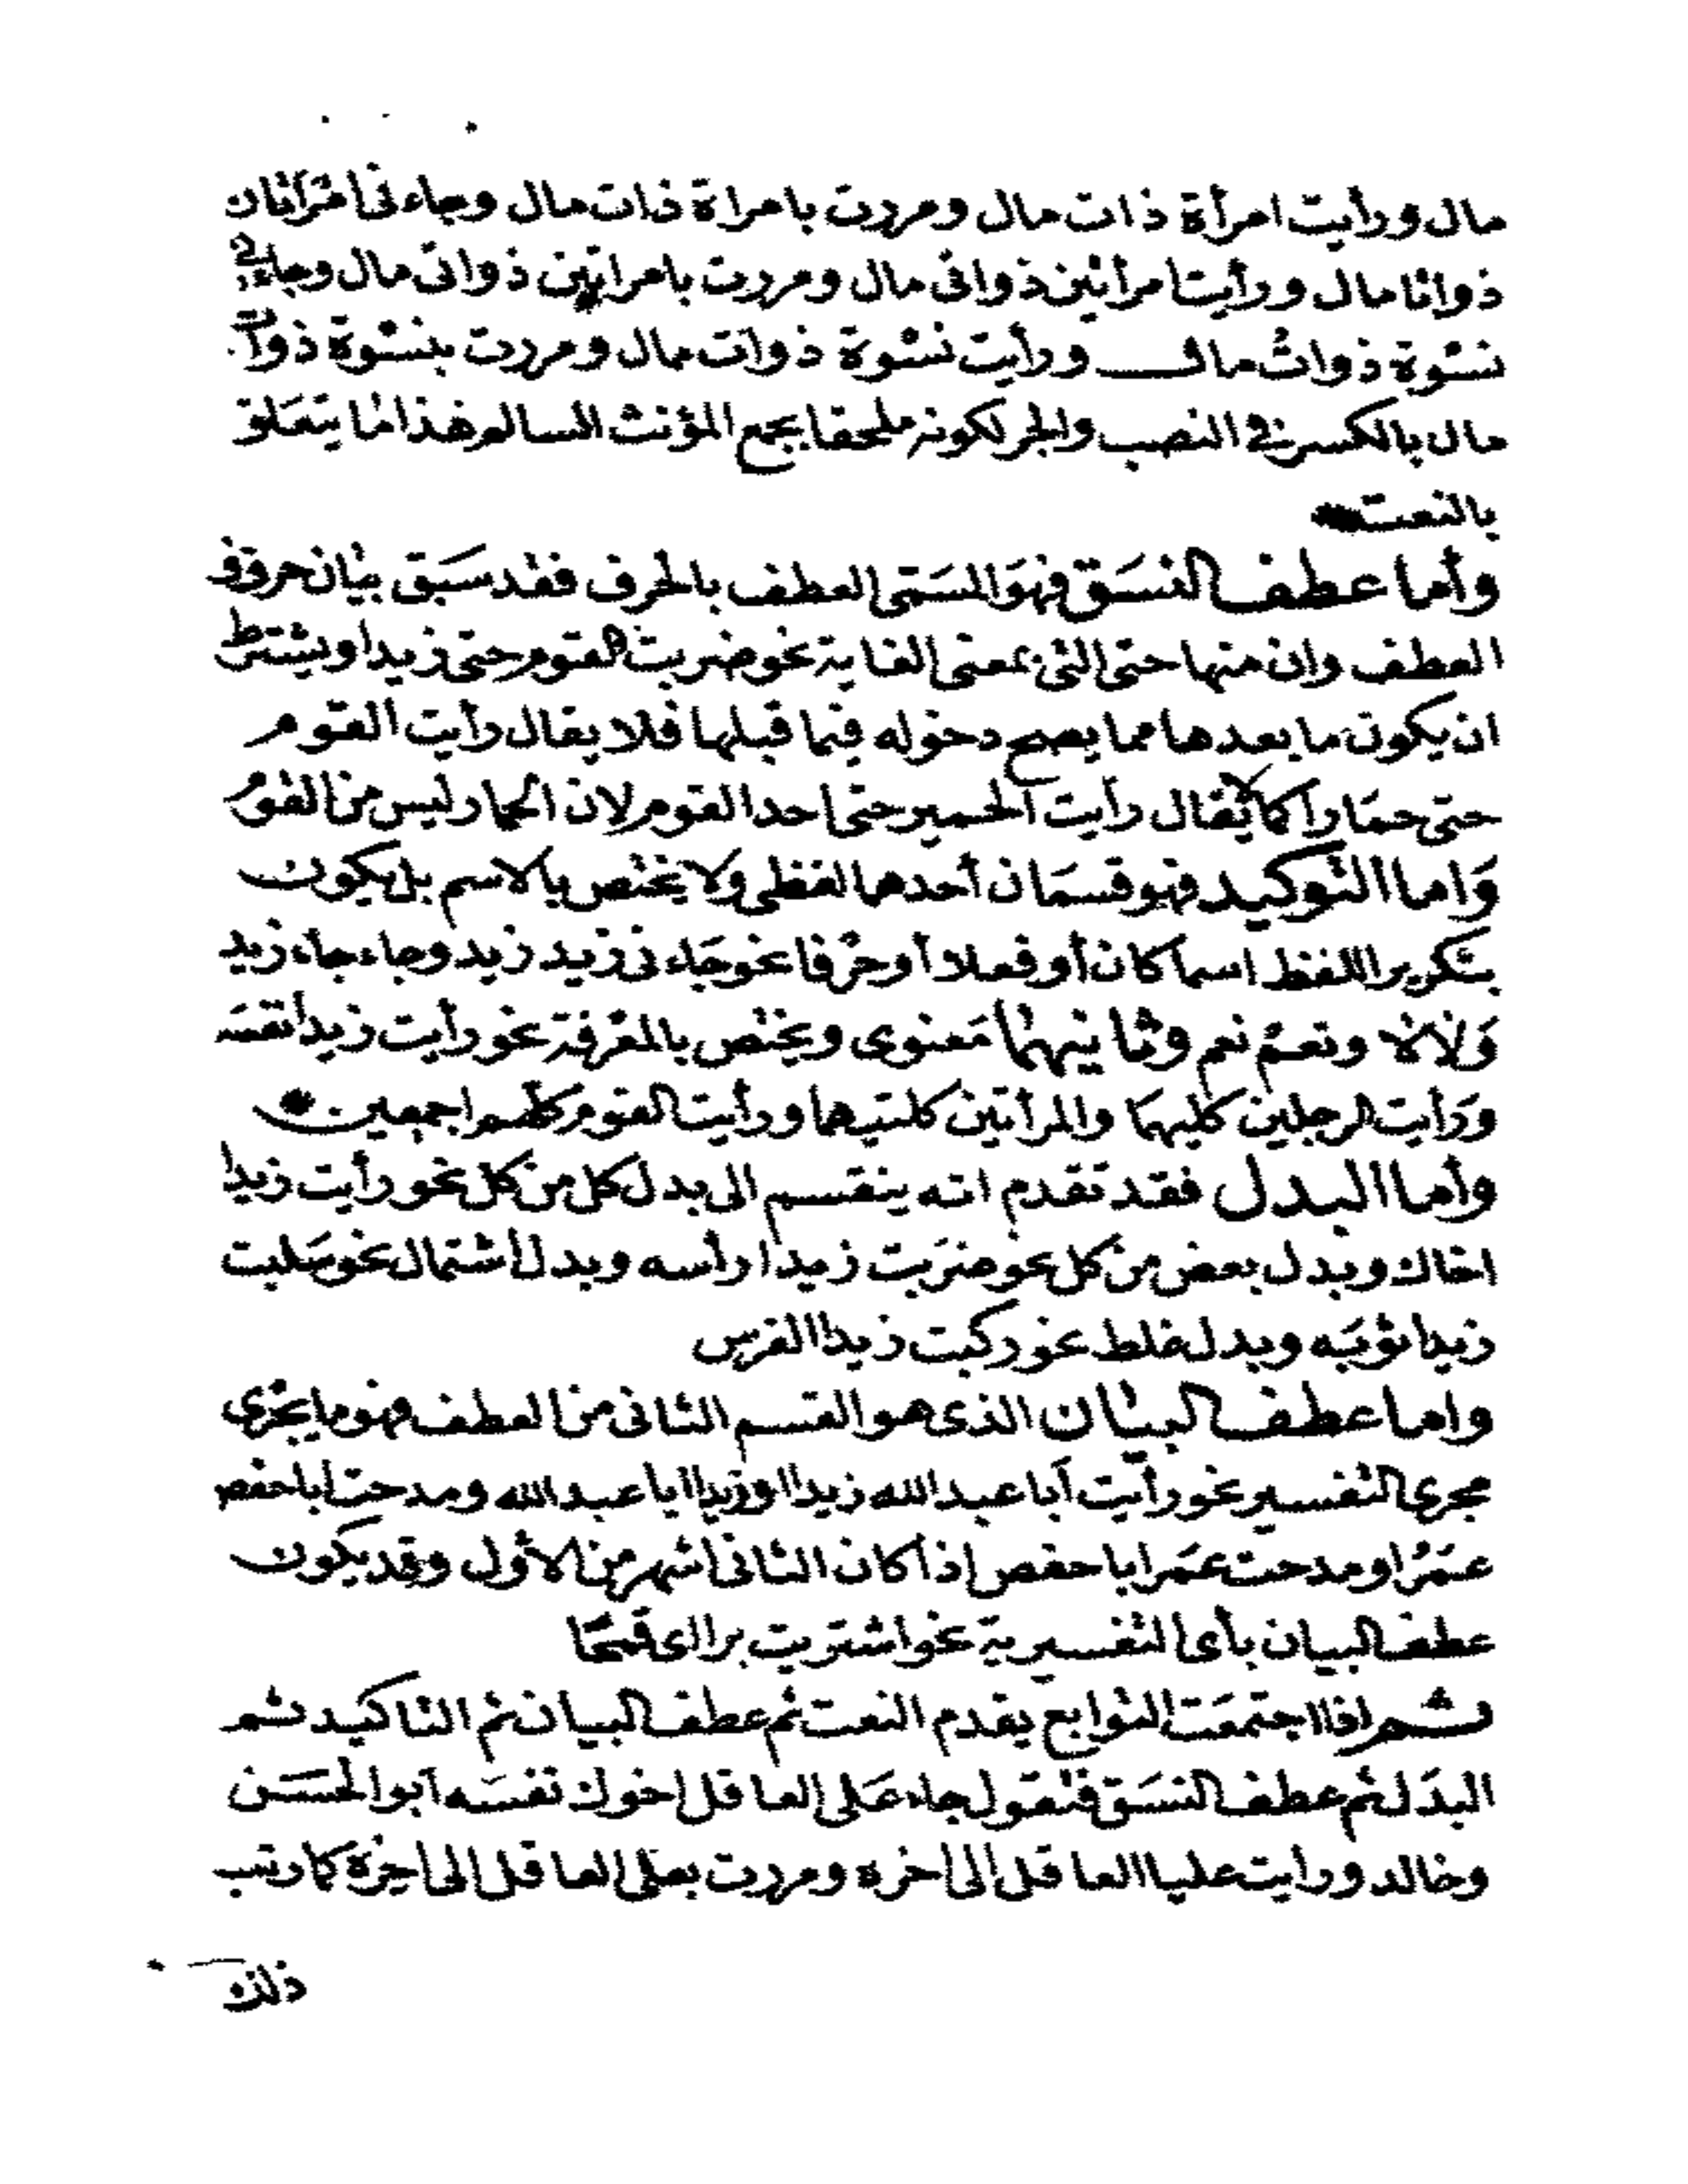 مال ورأيت امرأة ذات مال ومررت بامراة ذات مال وجاءنى امرأتان
ذواتا مال ورأيت امرأتين ذواتى مال ومررت بامراتين ذواتى مال وجاءنى
نسوة ذوات مال ورأيت نسوة ذوات مال ومررت بنسوة ذوات
مال بالكسر فى النصب والجر لكونه ملحقا بجمع المؤنث السالم هذا ما يتعلق
بالنعت
وأما عطف النسق فهو المسمى العطف بالحرف فقد سبق بيان حروف
العطف وان منها حتى التى بمعنى الغاية نحو ضربت القوم حتى زيدا ويشترط
ان يكون ما بعدها مما يصح دخوله فيما قبلها فلا يقال رأيت القوم
حتى حمارا كما لا يقال رأيت الحمير حتى احد القوم لان الحمار ليس من القوم
واما التوكيد فهو قسمان أحدهما لفظى ولا يختص بالاسم بل يكون
بتكرير اللفظ اسما كان أو فعلا أو حرفا نحو جاءنى زيد زيد وجاء جاء زيد
ولا لا ونعم نعم وثانيهما معنوى ويختص بالمعرفة نحو رأيت زيدا نفسه
ورأيت الرجلين كليهما والمرأتين كلتيهما ورأيت القوم كلهم اجمعين
وأما البدل فقد تقدم انه ينقسم الى بدل كل من كل نحو رأيت زيدا
اخاك وبدل بعض من كل نحو ضربت زيدا رأسه وبدل اشتمال نحو سلبت
زيدا ثوبه وبدل غلط نحو ركبت زيدا الفرس
واما عطف البيان الذى هو القسم الثانى من العطف فهو ما يجرى
مجرى التفسير نحو رأيت أبا عبد الله زيدا او زيدا ابا عبد الله ومدحت ابا حفص
عمرا ومدحت عمرا با حفص اذا كان الثانى اشهر من الاول وقد يكون
عطف البيان بأى التفسيرية نحو اشتريت برا اى قمحا
ثم اذا اجتمعت التوابع يقدم النعت ثم عطف البيان ثم التاكيد ثم
البدل ثم عطف النسق فتقول جاء على العاقل اخوك نفسه أبو الحسن
وخالد ورايت عليا العاقل الى اخره ومررت بعلى العاقل الى اخره كما رتب
ذلك